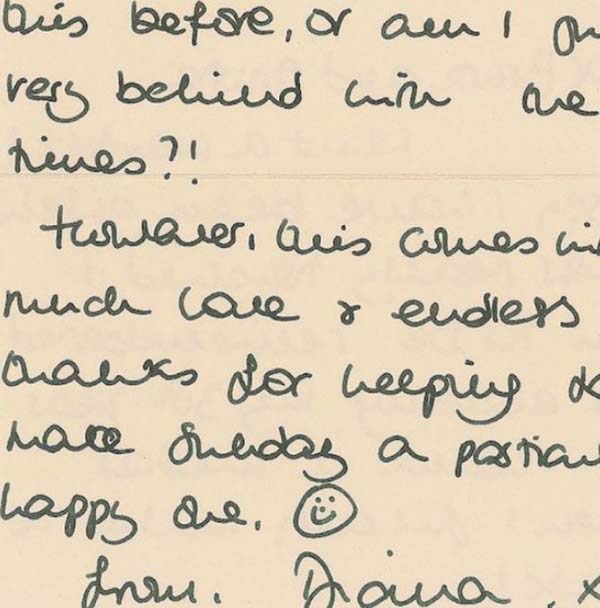 this before, or am I ju
very behind with the
times?!
However, this comes wi
much love & endless
thanks for helping to
make Sunday a particu
happy one. ☺
from. Diana. x